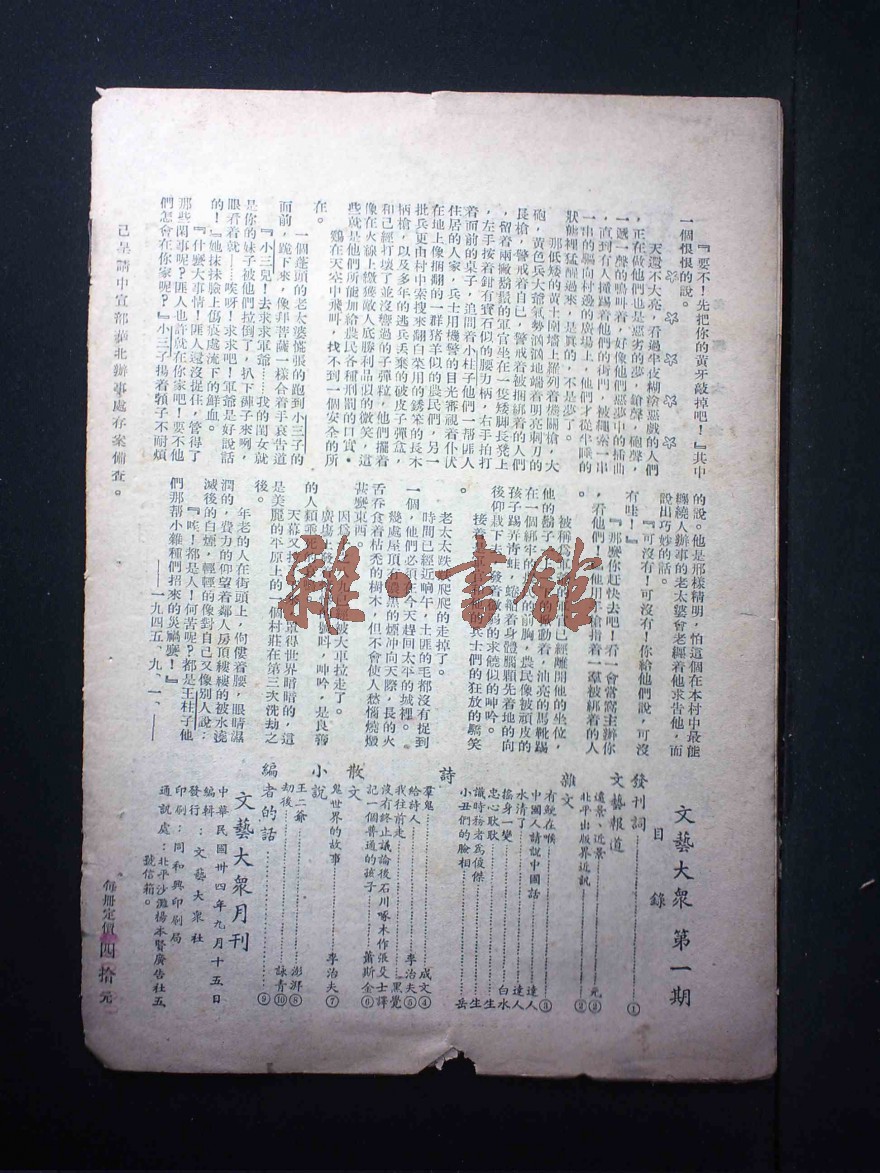 『要不！先把你的黃牙敲掉吧！』其中
一個恨恨的說。
☆ ☆ ☆ ☆
天還不大亮，看過半夜糊塗惡戲的人們
，正在做他們也是惡劣的夢，鎗聲，砲聲，
一遞一聲的鳴叫着，好像他們惡夢中的插曲
，直到有人撞踢着他們的街門，被繩索一串
一串的驅向村邊的廣場上，他們才從半睡的
狀態裡猛醒過來，是真的，不是夢了。
那低矮的黃土圍墻上羅列着機關槍，大
砲，黃色兵大爺氣勢洶洶地端着明亮刺刀的
長槍，警戒着自己，警戒着被捆綁着的人們
，留着兩撇鬍鬚的軍官坐在一隻矮脚長凳上
，左手按着鉗有寶石似的腰刀柄，右手拍打
着面前的桌子，追問着小柱子他們一帮匪人
住居的人家，兵士用機警的目光審視着仆伏
在地上像捆翻的一群猪羊似的農民們，另一
批兵更由村中索搜來翻白菜用的銹笨的長木
柄槍，以及多年的逃兵丢棄的破皮子彈盒，
和已經打壞了並沒響過的子彈粒，他們擺着
像在火線上繳獲敵人底勝利品似的微笑，這
些就是他們所能加給農民各種刑罰的口實。
鷄在天空中飛叫，找不到一個安全的所
在。
一個蓬頭的老太婆慌張的跑到小三子的
面前，跪下來，像拜菩薩一樣合着手哀告道
『小三兒！去求求軍爺……我的閨女就
是你的妹子被他們拉倒了，扒下褲子來咧，
眼看着就……唉呀！求求吧！軍爺是好說話
的！』她抹抹臉上傷痕處流下的鮮血。
『什麼大事情！匪人還沒捉住，管得了
那些閑事呢？匪人也許就在你家吧！要不他
們怎會在你家呢？』小三子揚着頸子不耐煩
的說。他是那樣精明，怕這個在本村中最能
纏繞人辦事的老太婆會老纒着他求告他，而
設出巧妙的話。
『可沒有！可沒有！你給他們說，可沒
有哇！』
『那麼你赶快去吧！看一會當窩主辦你
，看他們！』他用手槍指着一羣被綁着的人
。
他的鬍子
在一個綁牢的
孩子踢弄青蛙，
後仰栽下去，發着微弱的求饒似的呻吟。
兵士們的狂放的驕笑
。
老太太跌跌爬爬的走掉了。
時間已經近晌午，土匪的毛都沒有捉到
一個，他們必須在今天赶回太平的城裡。
幾處屋頂的濃黑的煙冲向天際，長的火
舌吞食着枯禿的樹木，但不會使人愁惱燒燬
甚麼東西，
因爲
的人類乖死
天幕
是美麗的平原上的一個村莊在第三次洗劫之
後。
年老的人在街頭上，佝僂着腰，眼睛濕
潤的，費力的仰望着鄰人房頂縷縷的被水澆
滅後的白煙，輕輕的像對自己又像別人說：
『咦！都是人！何苦呢？都是王柱子他
們那帮小雜種們招來的災禍麼！』
——一九四五、九、一、——
己呈請中宣部華北辦事處存案備查。
文藝大衆 第一期
目錄
發刊詞……①
文藝報道
遠景、近景……元②
北平出版界近訊……②
雜文
有鯁在喉……③
中國人請說中國話……達人
水清了……達人
搖身一變……白水
忠心耿耿……生
識時務者爲俊傑……生
小丑們的臉相……岳
詩
羣鬼……成文④
給詩人……李治夫⑤
我往前走……黑覺
沒有終止議論後石川啄木作張爻士譯
記一個普通的孩子……蕭斯金⑥
散文
鬼世界的故事……李治夫⑦
小說
王二爺……澎湃⑧
劫後……詠青⑩
編者的話……⑨
文藝大衆月刊
中華民國卅四年九月十五日
編輯：文藝大衆社
發行：
印刷：同和興印刷局
通訊處：北平沙灘楊本賢廣告社五
號信箱。
每冊定價四拾元
雜·書館